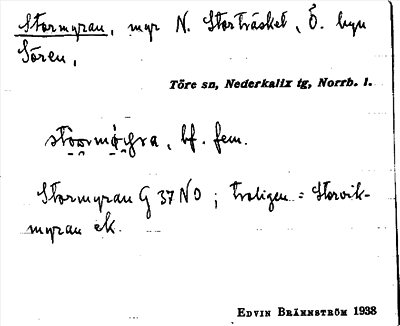 Stormyran, myr N. Storträsket, Ö. byn
Sören,
Töre sn, Nederkalix tg, Norrb. l.
bf. fem.
Stormyran G 37 NO; troligen = Storvik-
myran ek.
EDVIN BRÄNNSTRÖM 1938